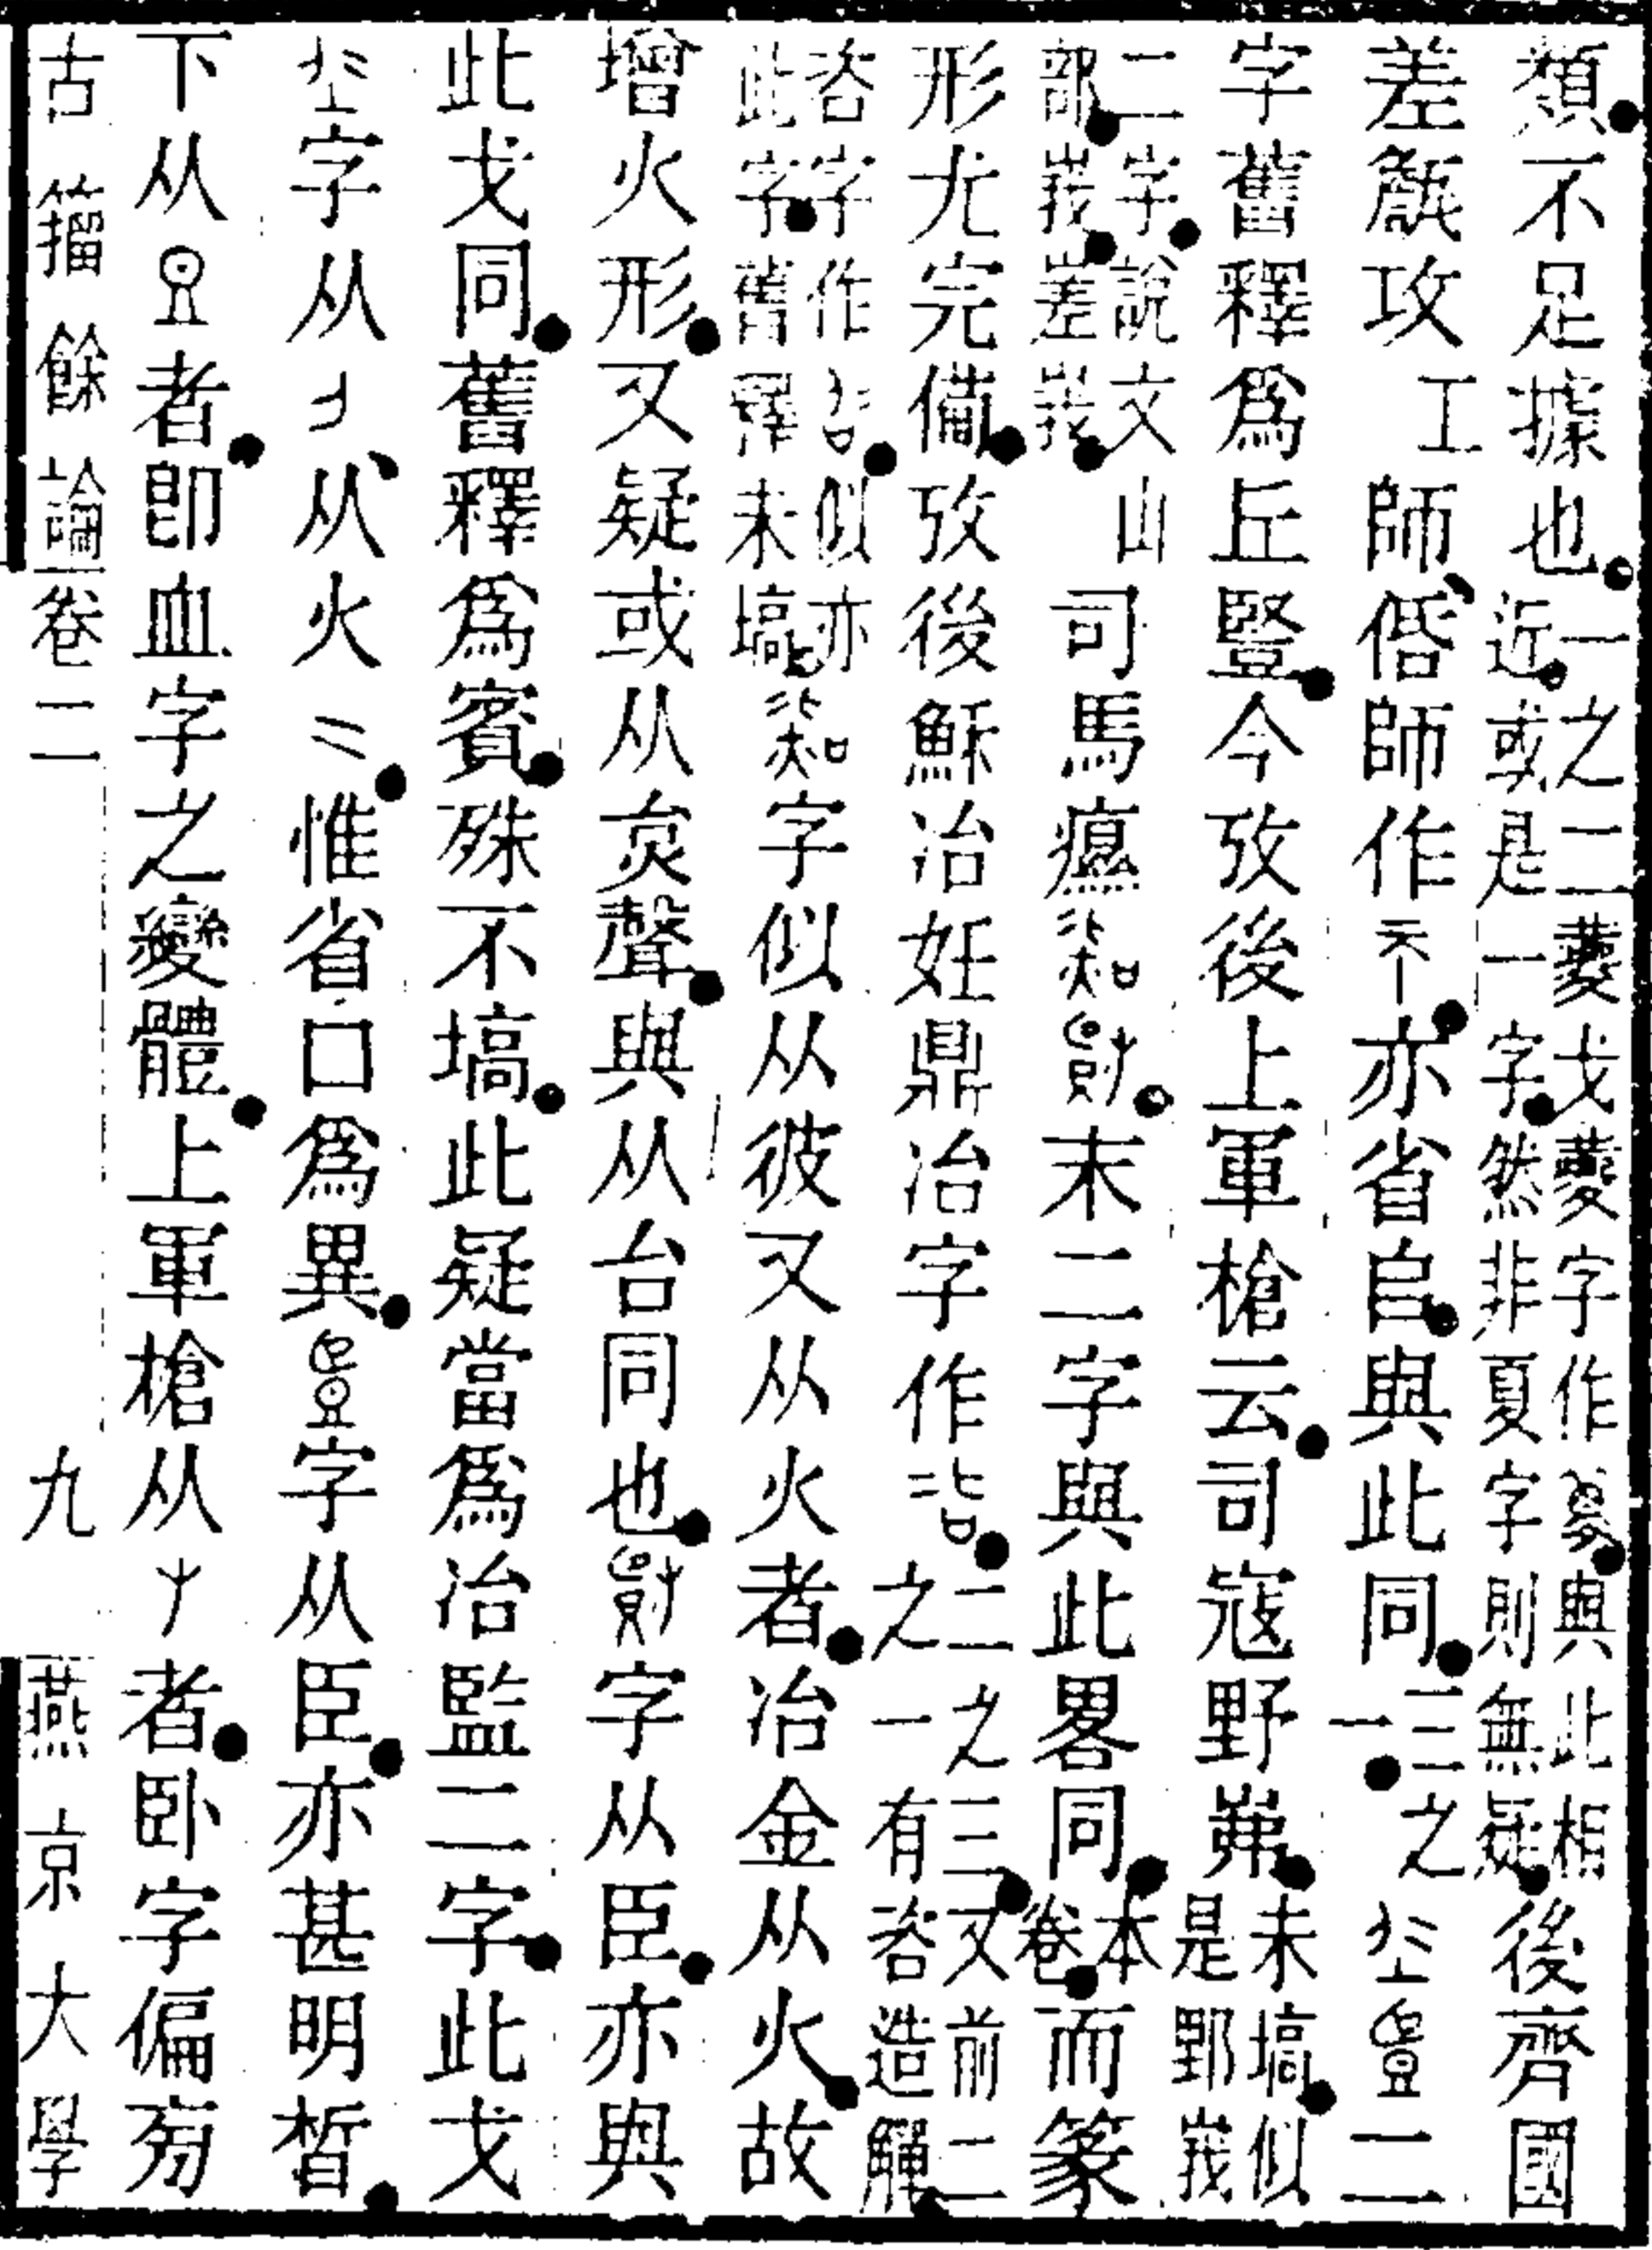 類不足據也一之二蔆戈蔆字作與此相近或是一字然非夏字則無疑後齊國
差攻工師偣師作亦省𠂤與此同三之一二
字舊釋爲丘豎今攷後上軍槍云司寇野茀未塙似是鄴峩
二字說文山部峩嵳峩司馬癋末二字與此畧同本卷而篆
形尤完備攷後穌冶妊鼎冶字作二之三又前二之一有咨造觶
咨字作似亦此字舊釋未塙字似从彼又从火者冶金从火故
增火形又疑或从炱聲與从台同也字从臣亦與
此戈同舊釋爲賓殊不塙此疑當爲冶監二字此戈
字从从火惟省口爲異字从臣亦甚明晳
下从者卽血字之變體上軍槍从者卧字偏㫄
古籀餘論卷二 九 燕京大學